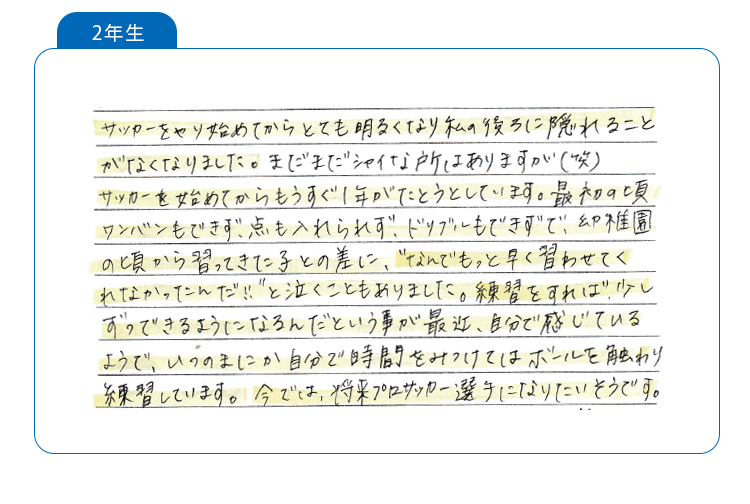 2年生
サッカーをやり始めてからとても明るくなり私の後ろに隠れること
がなくなりました。まだまだシャイな所はありますが(笑)
サッカーを始めてからもうすぐ1年がたとうとしています。最初の頃
ワンバンもできず、点も入れられず、ドリブルもできずで、幼稚園
の頃から習ってきた子との差に、"なんでもっと早く習わせてく
れなかったんだ!!"と泣くこともありました。練習をすれば、少し
ずつできるようになるんだという事が最近、自分で感じている
ようで、いつのまにか自分で時間をみつけてはボールを触わり
練習しています。今では、将来プロサッカー選手になりたいそうです。